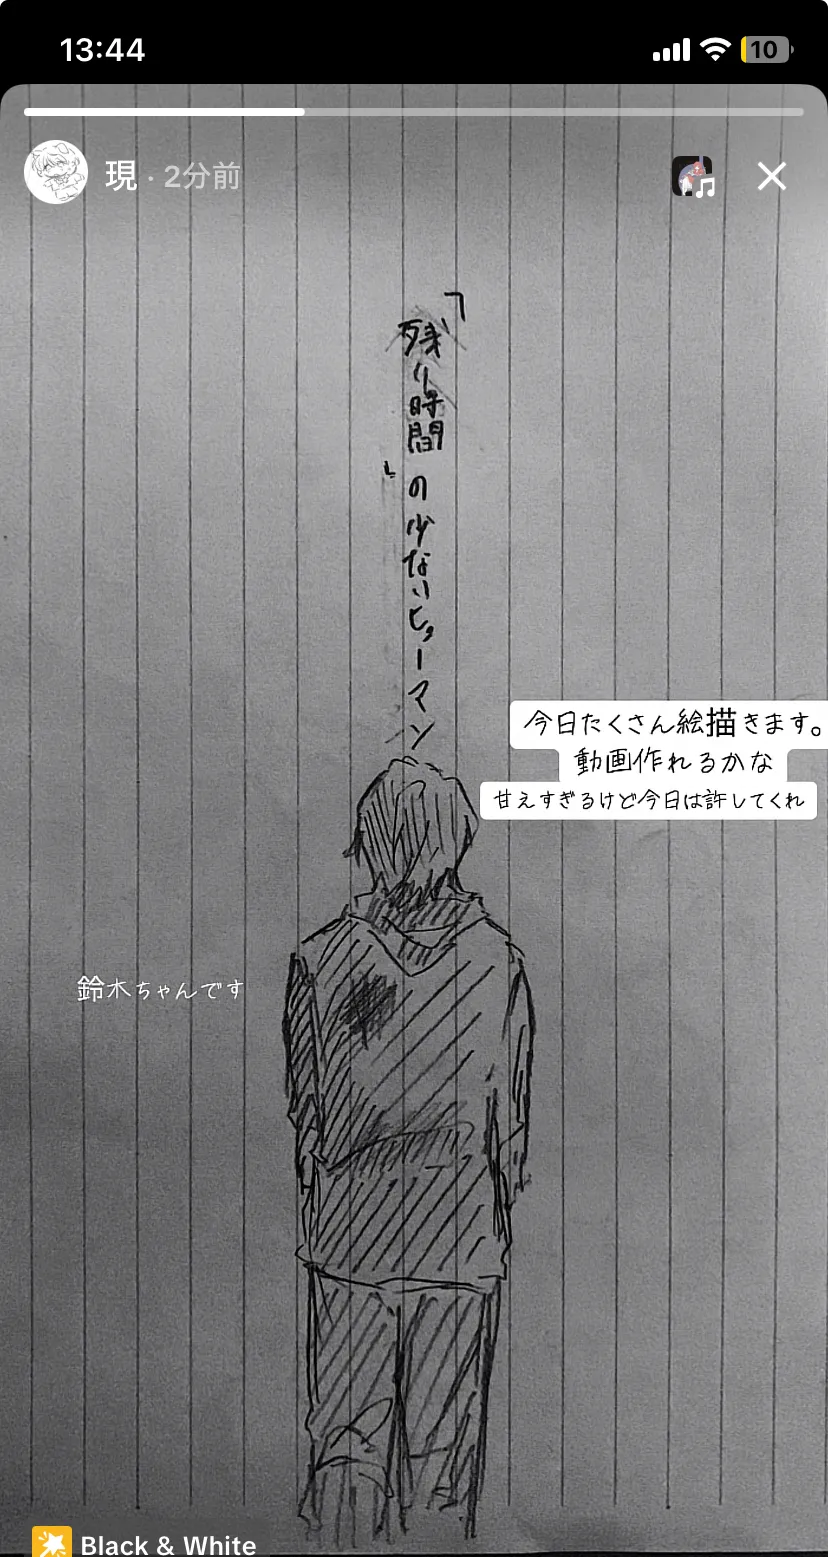 13:44
10
現 · 2分前
「残り時間」の少ないヒューマン
今日たくさん絵描きます。
動画作れるかな
甘えすぎるけど今日は許してくれ
鈴木ちゃんです
Black & White